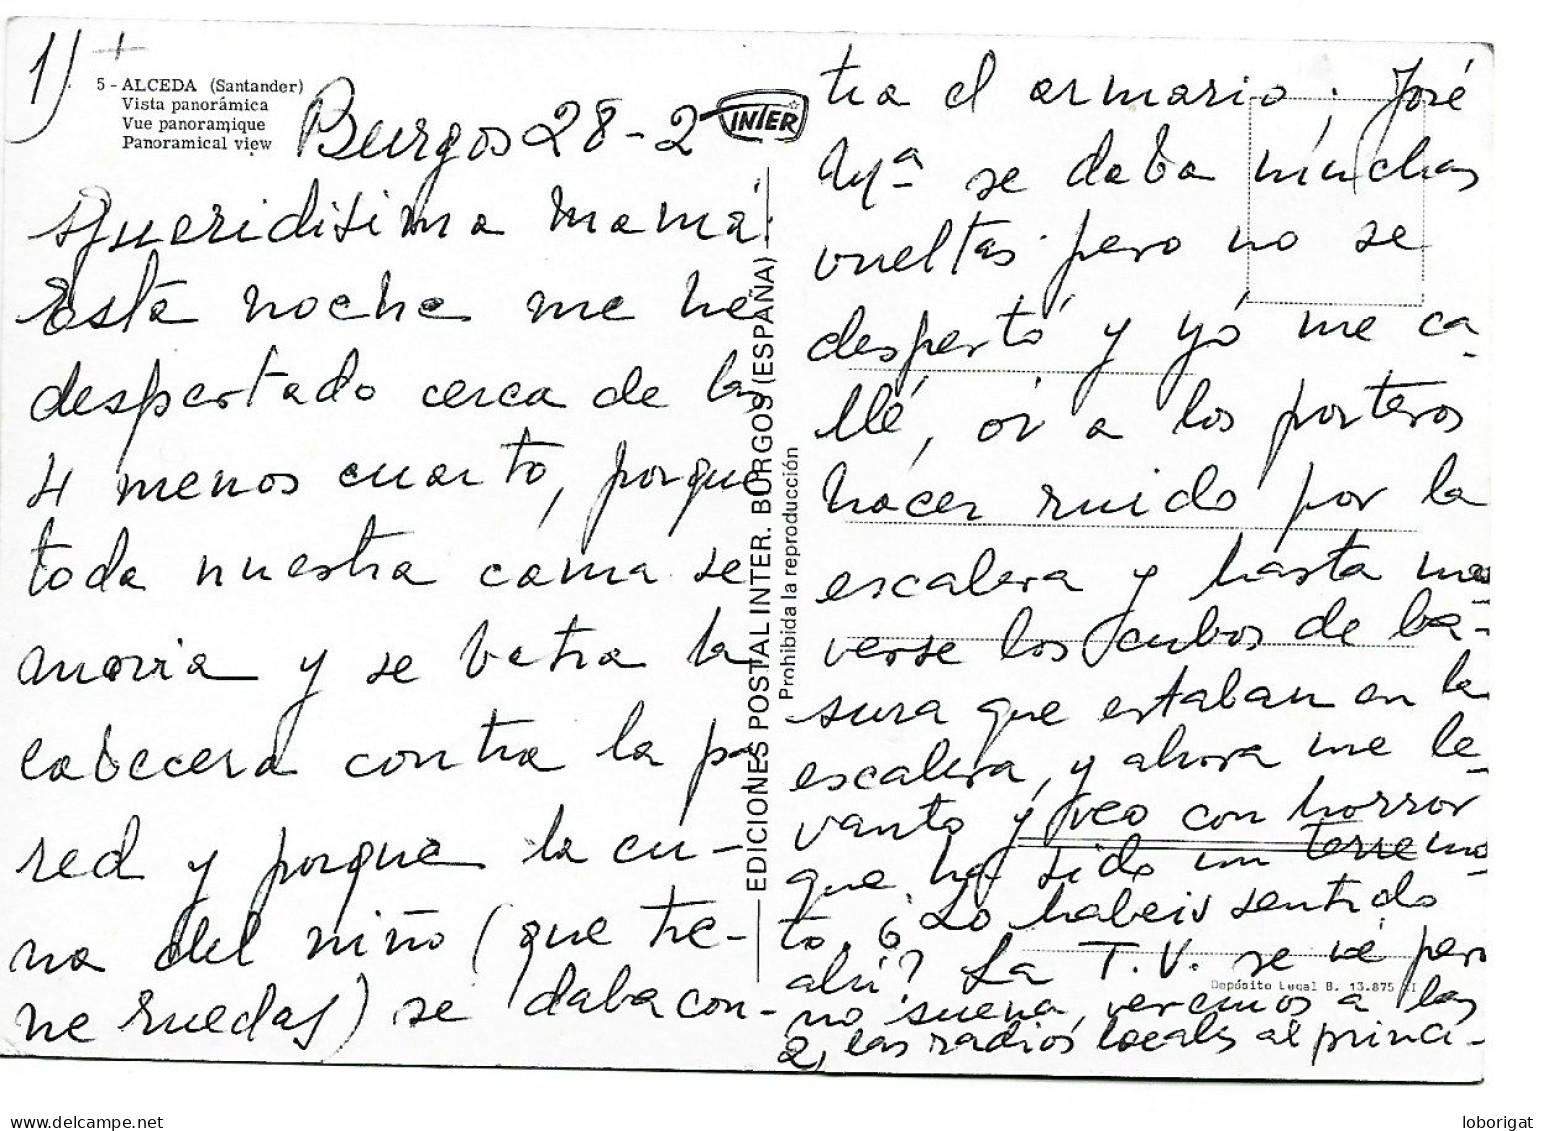 1) +
5 - ALCEDA (Santander)
Vista panorámica
Vue panoramique
Panoramical view
Burgos 28-2
INTER
Queridisima mamá:
Esta noche me he
despertado cerca de las
4 menos cuarto, porque
toda nuestra cama se
movia y se batia la
cabecera contra la pa
red y porque la cu-
na del niño (que tie-
ne ruedas) se daba con-
EDICIONES POSTAL INTER. BURGOS (ESPAÑA)
Prohibida la reproducción
tra el armario; José
Mª se daba muchas
vueltas pero no se
despertó y yó me ca-
llé, oí a los porteros
hacer ruido por la
escalera y hasta mo-
verse los cubos de ba-
sura que estaban en la
escalera, y ahora me le-
vanto y veo con horror
que ha sido un terremo-
to. ¿Lo habeis sentido
ahí? La T.V. se vé pero
no suena, veremos a las
2, las radios locales al princi-
Depósito Legal B. 13.875 XI
loborigat
www.delcampe.net